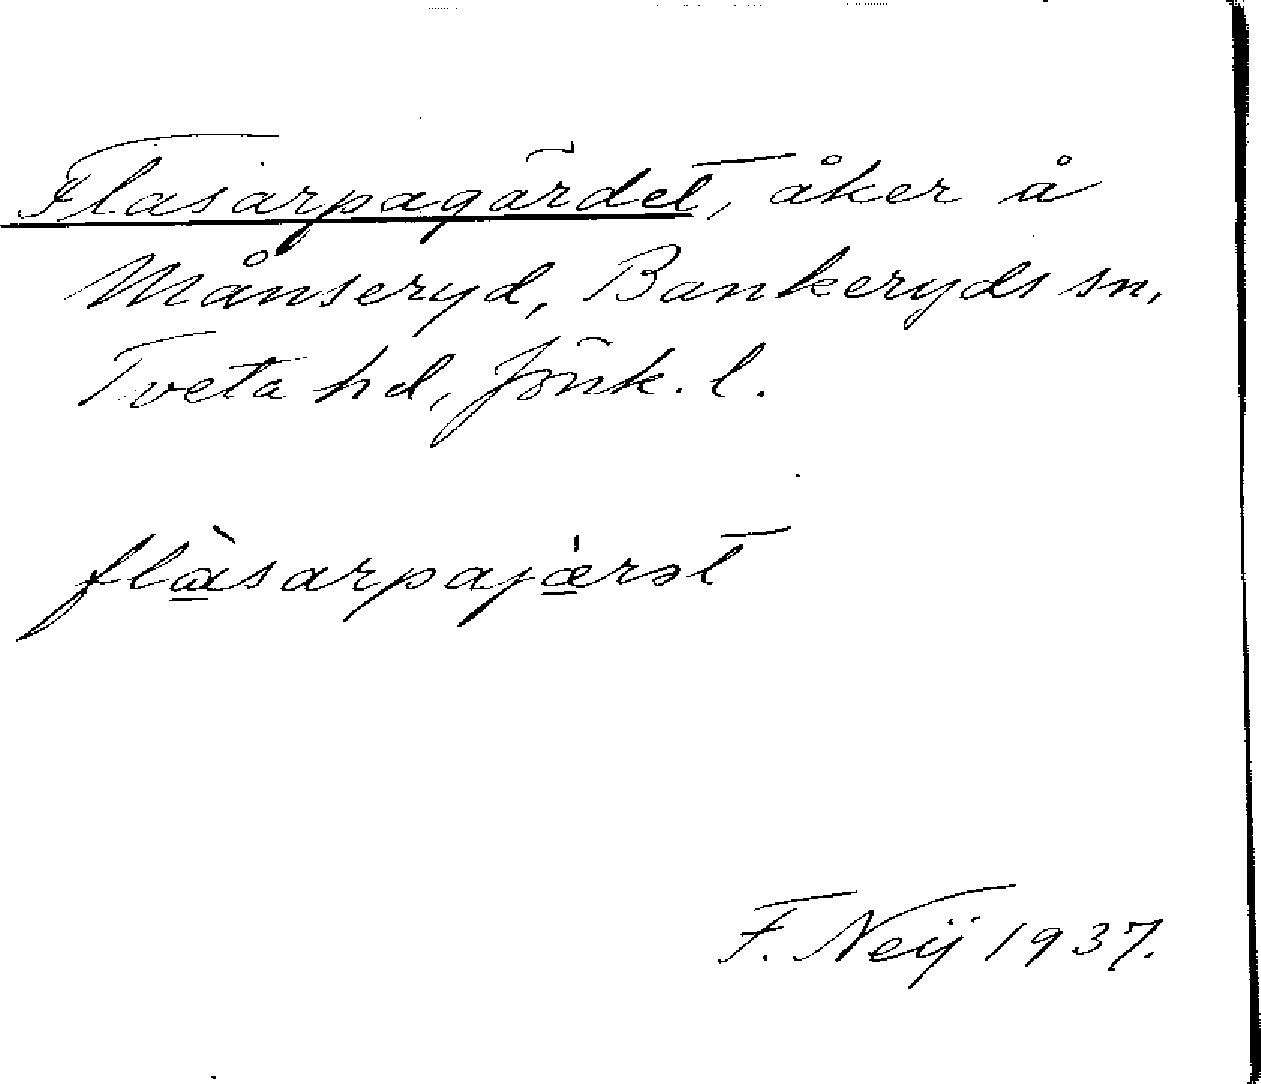 Flasarpagärdet, åker å
Månseryd, Bankeryds sn,
Tveta hd, Jönk. l.
flàsarpajærət
F. Neij 1937.